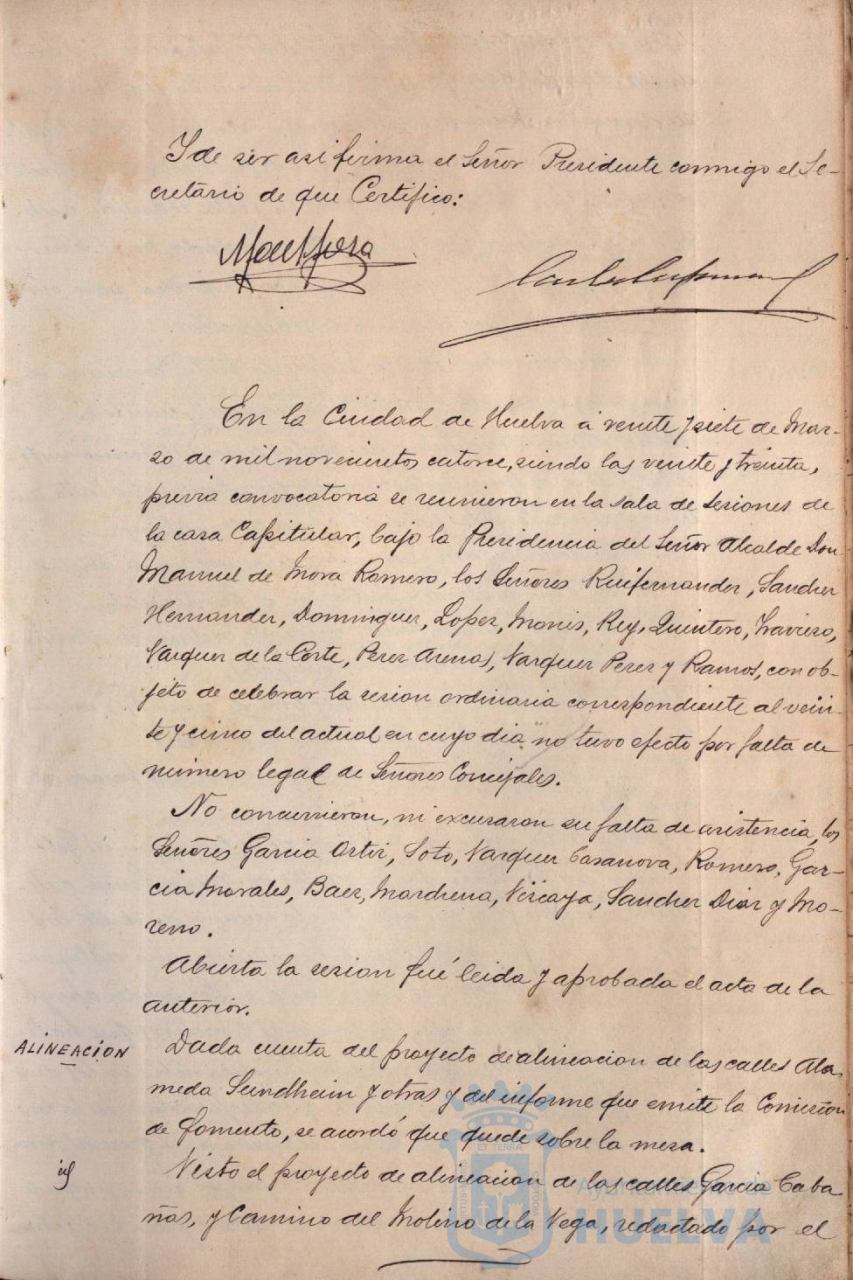 Y de ser asi firma el Señor Presidente conmigo el Se-
cretario de que Certifico:
En la Ciudad de Huelva á veinte y siete de Mar-
zo de mil novecientos catorce, siendo las veinte y treinta,
previa convocatoria se reunieron en la sala de Sesiones de
la casa Capitular, bajo la Presidencia del Señor Alcalde Don
Manuel de Mora Romero, los Señores Ruifernandez, Sanchez
Hernandez, Dominguez, Lopez, Monis, Rey, Quintero, Travieso,
Vazquez de la Corte, Perez Arenas, Vazquez Perez y Ramos, con ob-
jeto de celebrar la sesion ordinaria correspondiente al vein-
te y cinco del actual en cuyo dia no tuvo efecto por falta de
número legal de Señores Concejales.
No concurrieron, ni excusaron su falta de asistencia, los
Señores Garcia Ortiz, Soto, Vazquez Casanova, Romero, Gar-
cia Morales, Baez, Marchena, Vizcaya, Sanchez Diaz y Mo-
reno.
Abierta la sesion fué leida y aprobada el acta de la
anterior.
ALINEACION
Dada cuenta del proyecto de alineacion de las calles Ala-
meda Sundheim y otras y del informe que emite la Comision
de fomento, se acordó que quede sobre la mesa.
id
Visto el proyecto de alineacion de las calles Garcia Caba-
ñas, y Camino del Molino de la Vega, redactado por el
Ayuntamiento de
HUELVA